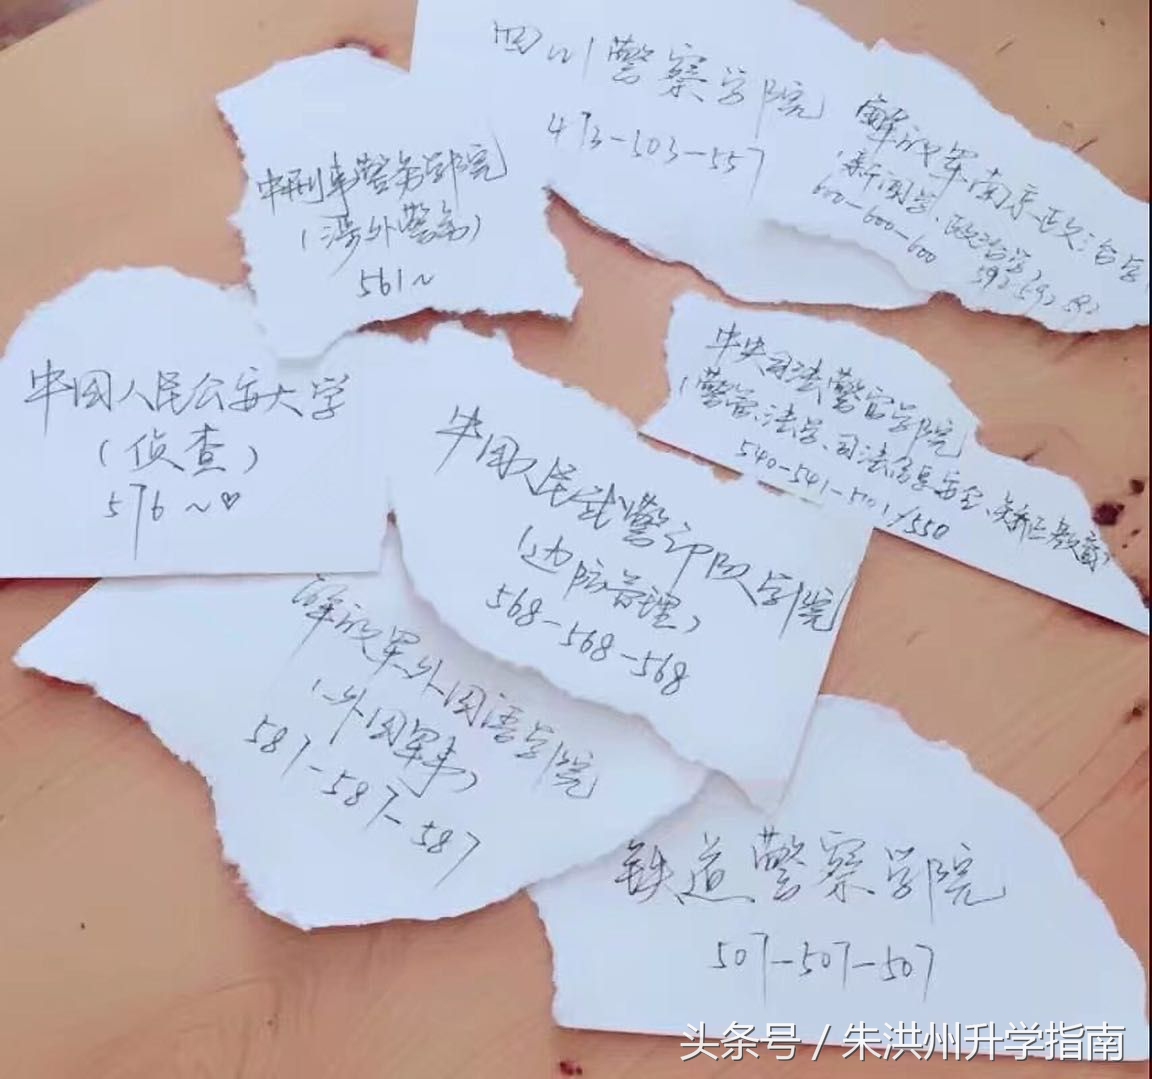 四川警察学院
473-503-557
解放军南京政治学
(新闻学、政治学)
600-600-600 592 592 592
中刑事警务学院
(涉外警务)
561~
中央司法警官学院
(警官、法学、司法信息安全、矫正教育)
540-541-550
中国人民公安大学
(侦查)
576~♡
中国人民武警部队学院
(边防管理)
568-568-568
解放军外国语学院
(外国军事)
587-587-587
铁道警察学院
507-507-507
头条号 / 朱洪州升学指南